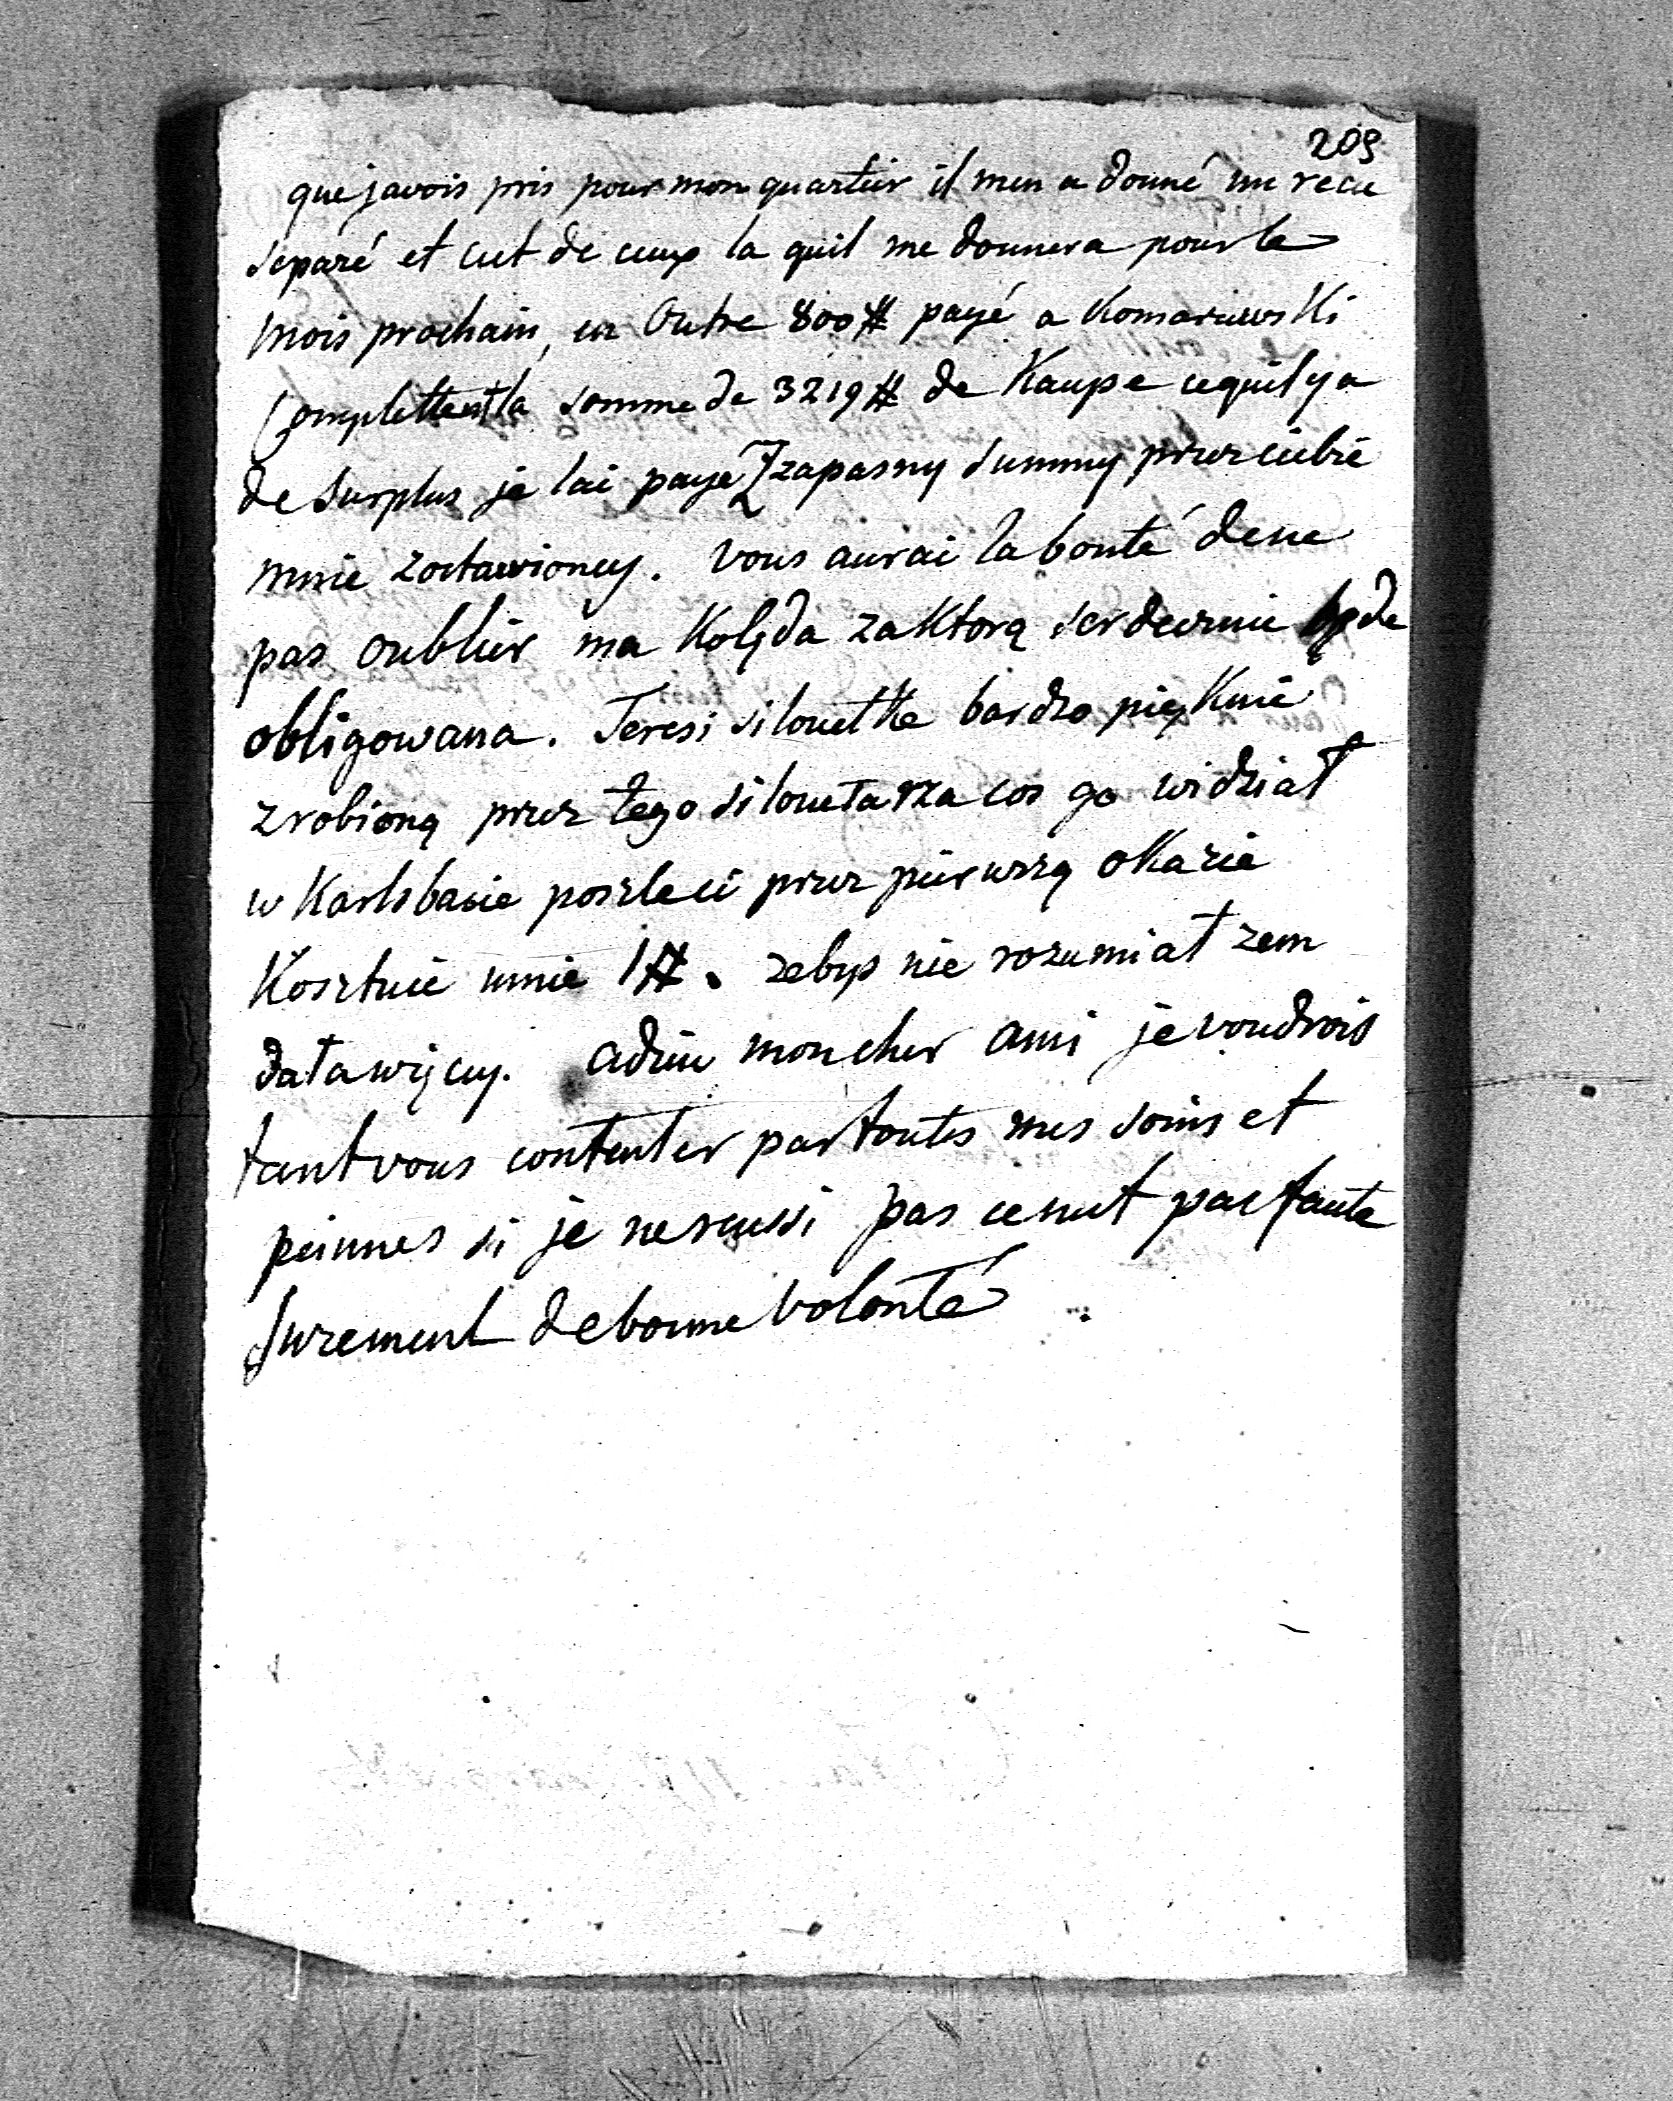 209
que javois pris pour mon quartier il men a donné un recu
separé et cut de ceux la quil me donnera pour le
mois prochain, en Outre 800 # payé a Komarzewski
Complettent la somme de 3219 # de Kaupe cequil y a
de Surplus je lai payé Z zapasny summy przez ciebie
mnie zostawioney. Vous aurai la bonté de ne
pas oublier ma Kolęda za Ktorą serdecznie będe
obligowana. Teresi silouetke bardzo pięknie
zrobioną przez tego siloueta rza cos go widział
w Karlsbacie poszle ci przez pierwszą okazie
Kosztuie mnie 1 #. zebys nie rozumiał zem
dała więcy. adieu mon cher ami je voudrois
tant vous contenter par toutes mes soins et
peinnes si je ne reussi pas ce nest pas faute
surement de bonne volonté